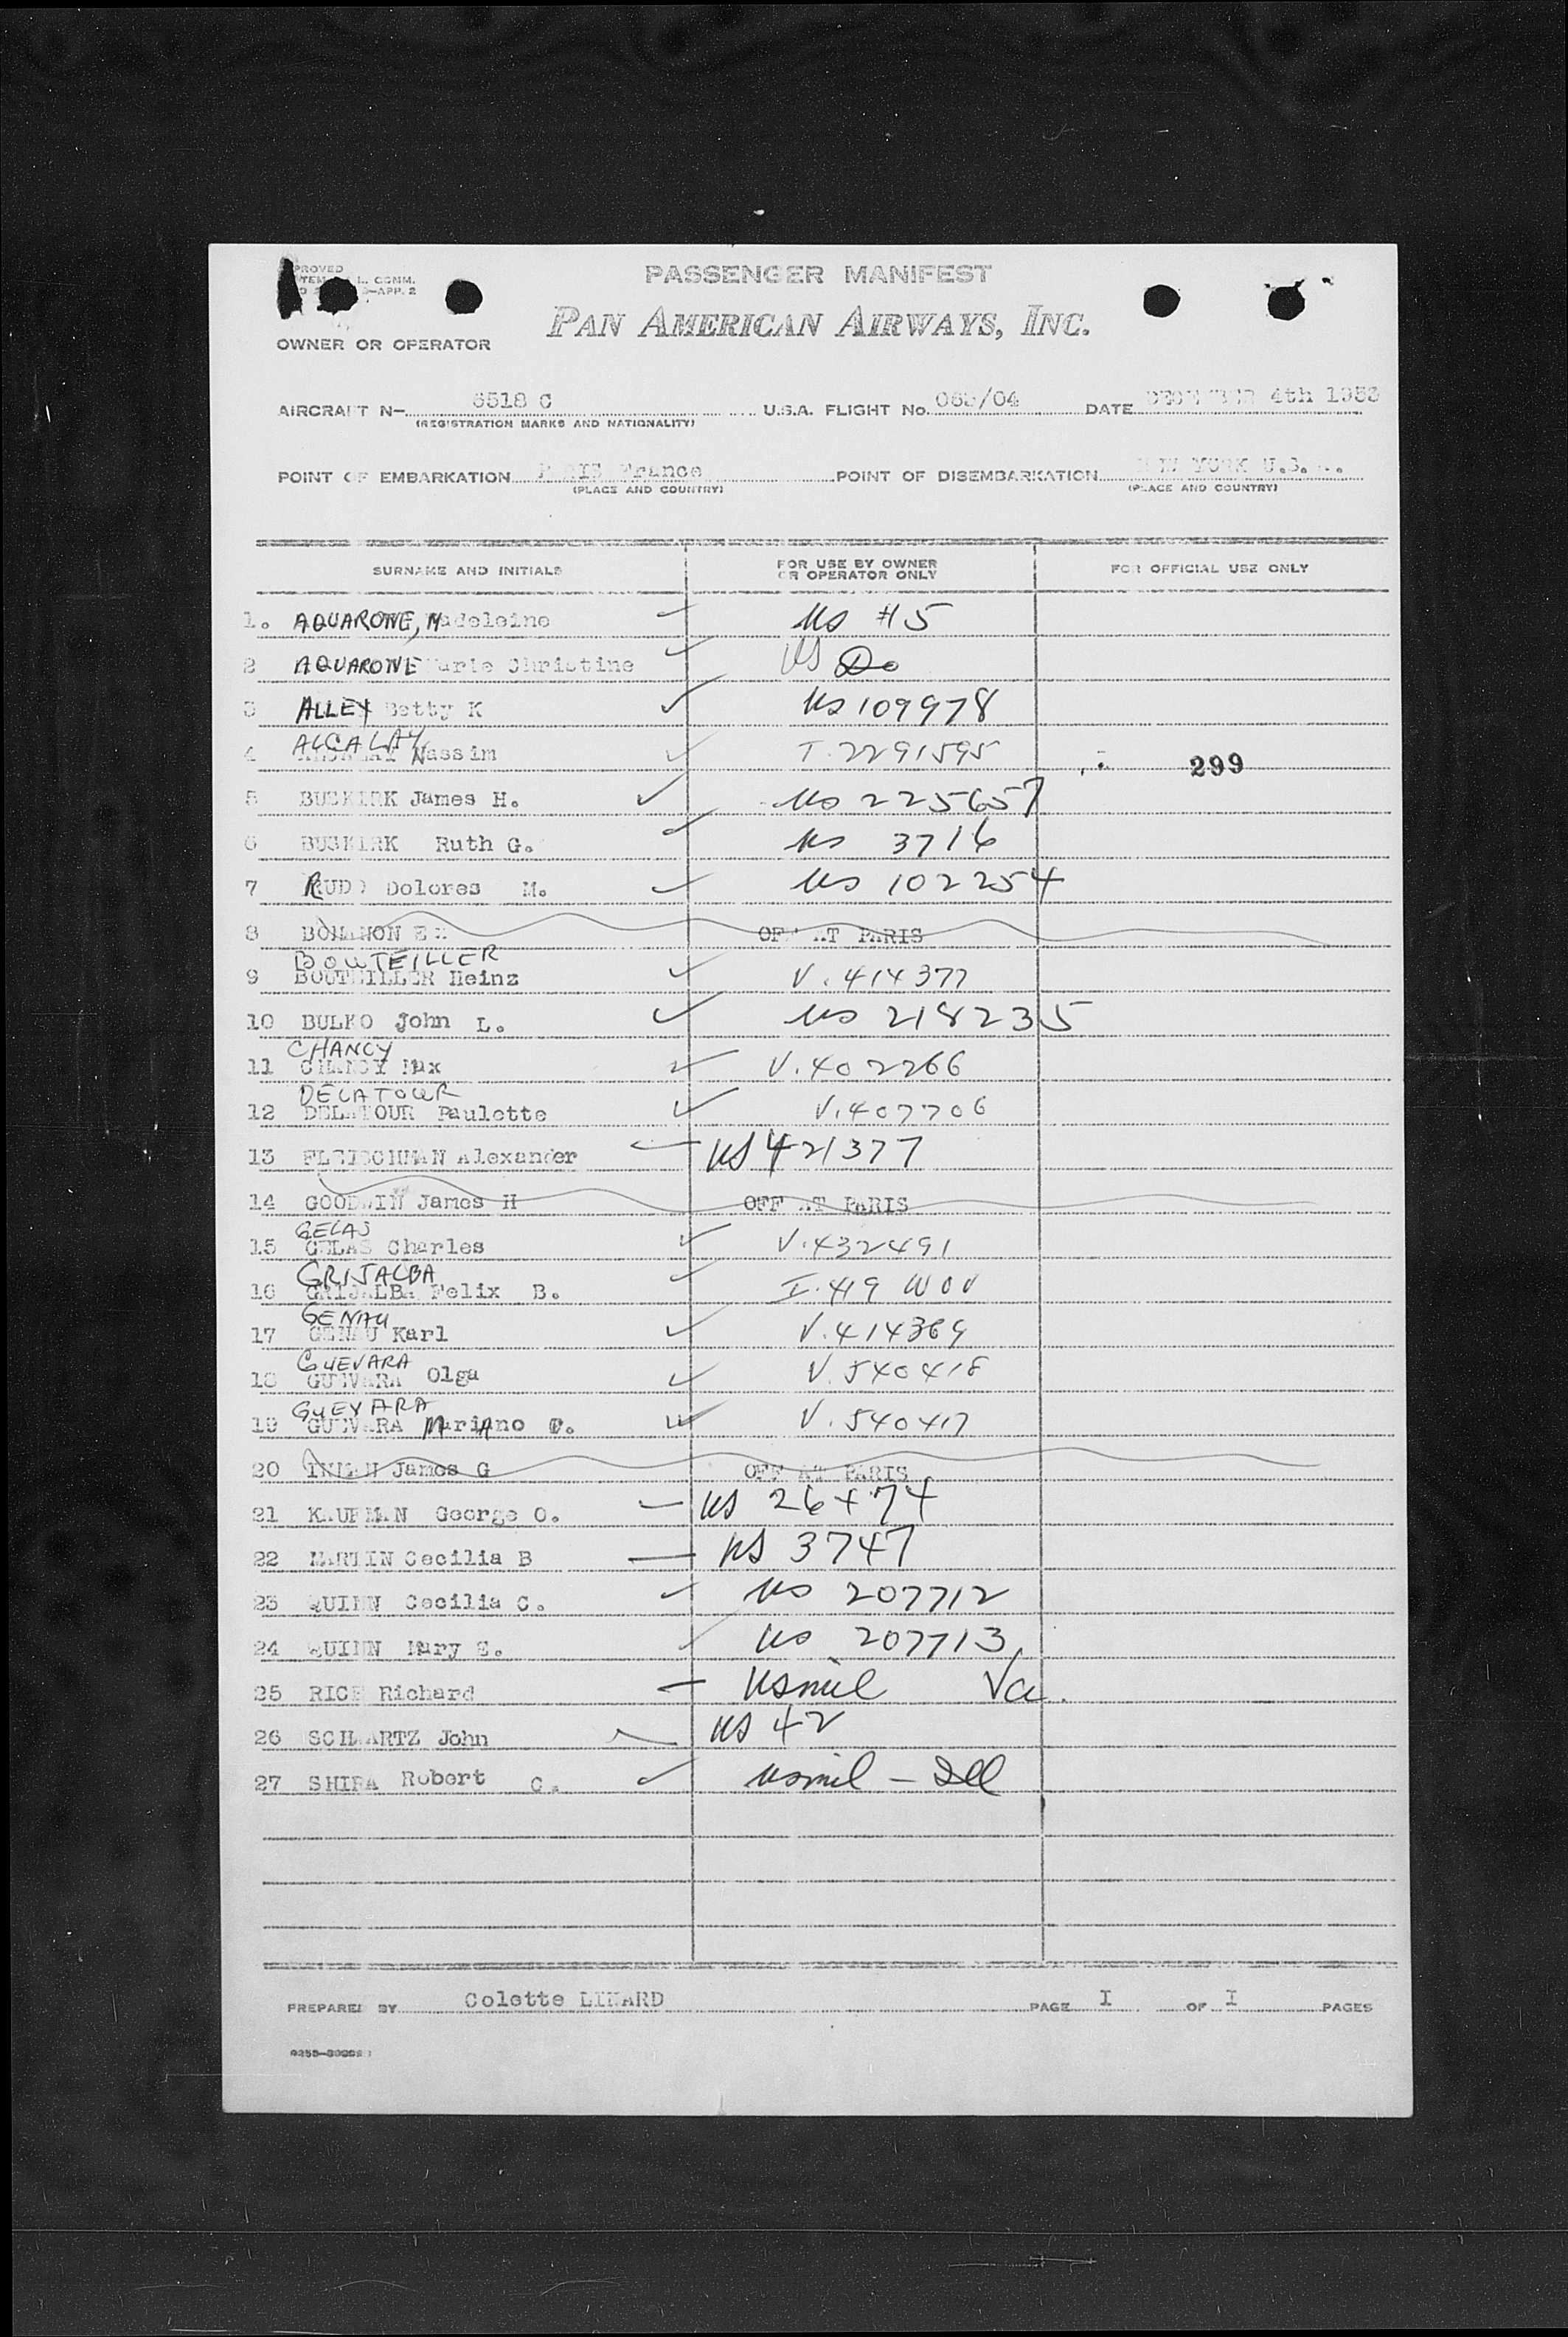 PASSENGER MANIFEST
PAN AMERICAN AIRWAYS, INC.
OWNER OR OPERATOR
AIRCRAFT N- 6518 C U.S.A. FLIGHT No. /04 DATE DECEMBER 4th 1953
(REGISTRATION MARKS AND NATIONALITY)
POINT OF EMBARKATION PARIS France POINT OF DISEMBARKATION NEW YORK U.S.A.
(PLACE AND COUNTRY) (PLACE AND COUNTRY)
SURNAME AND INITIALS FOR USE BY OWNER OR OPERATOR ONLY FOR OFFICIAL USE ONLY
1. AQUARONE, Madeleine US #5
2 AQUARONE Marie Christine US Do
3 ALLEY Betty K US 109978
ALCALAY
4 ALCALAY Nassim T. 2291595 299
5 BUSKIRK James H. US 225657
6 BUSKIRK Ruth G. US 3716
7 RUDD Dolores M. US 102254
8 OFF AT PARIS
BOUTEILLER
9 BOUTEILLER Heinz V. 414377
10 BULKO John L. US 218235
CHANCY
11 CHANCY Max V. 402266
DELATOUR
12 DELATOUR Paulette V. 407706
13 FLEISCHMAN Alexander US 421377
14 GOODWIN James H OFF AT PARIS
GELAS
15 GELAS Charles V. 432491
GRIJALBA
16 GRIJALBA Felix B. I. 419 WOV
GENAU
17 GENAU Karl V. 414369
GUEVARA
18 GUEVARA Olga V. 540418
GUEVARA
19 GUEVARA Mariano V. 540417
20 James G OFF AT PARIS
21 KAUFMAN George O. US 26474
22 MARTIN Cecilia B US 3747
23 QUINN Cecilia C. US 207712
24 QUINN Mary E. US 207713
25 RICE Richard USmil Va.
26 SCHWARTZ John US 42
27 SHIRA Robert C. usmil - Ill
PREPARED BY Colette LINARD PAGE I OF I PAGES